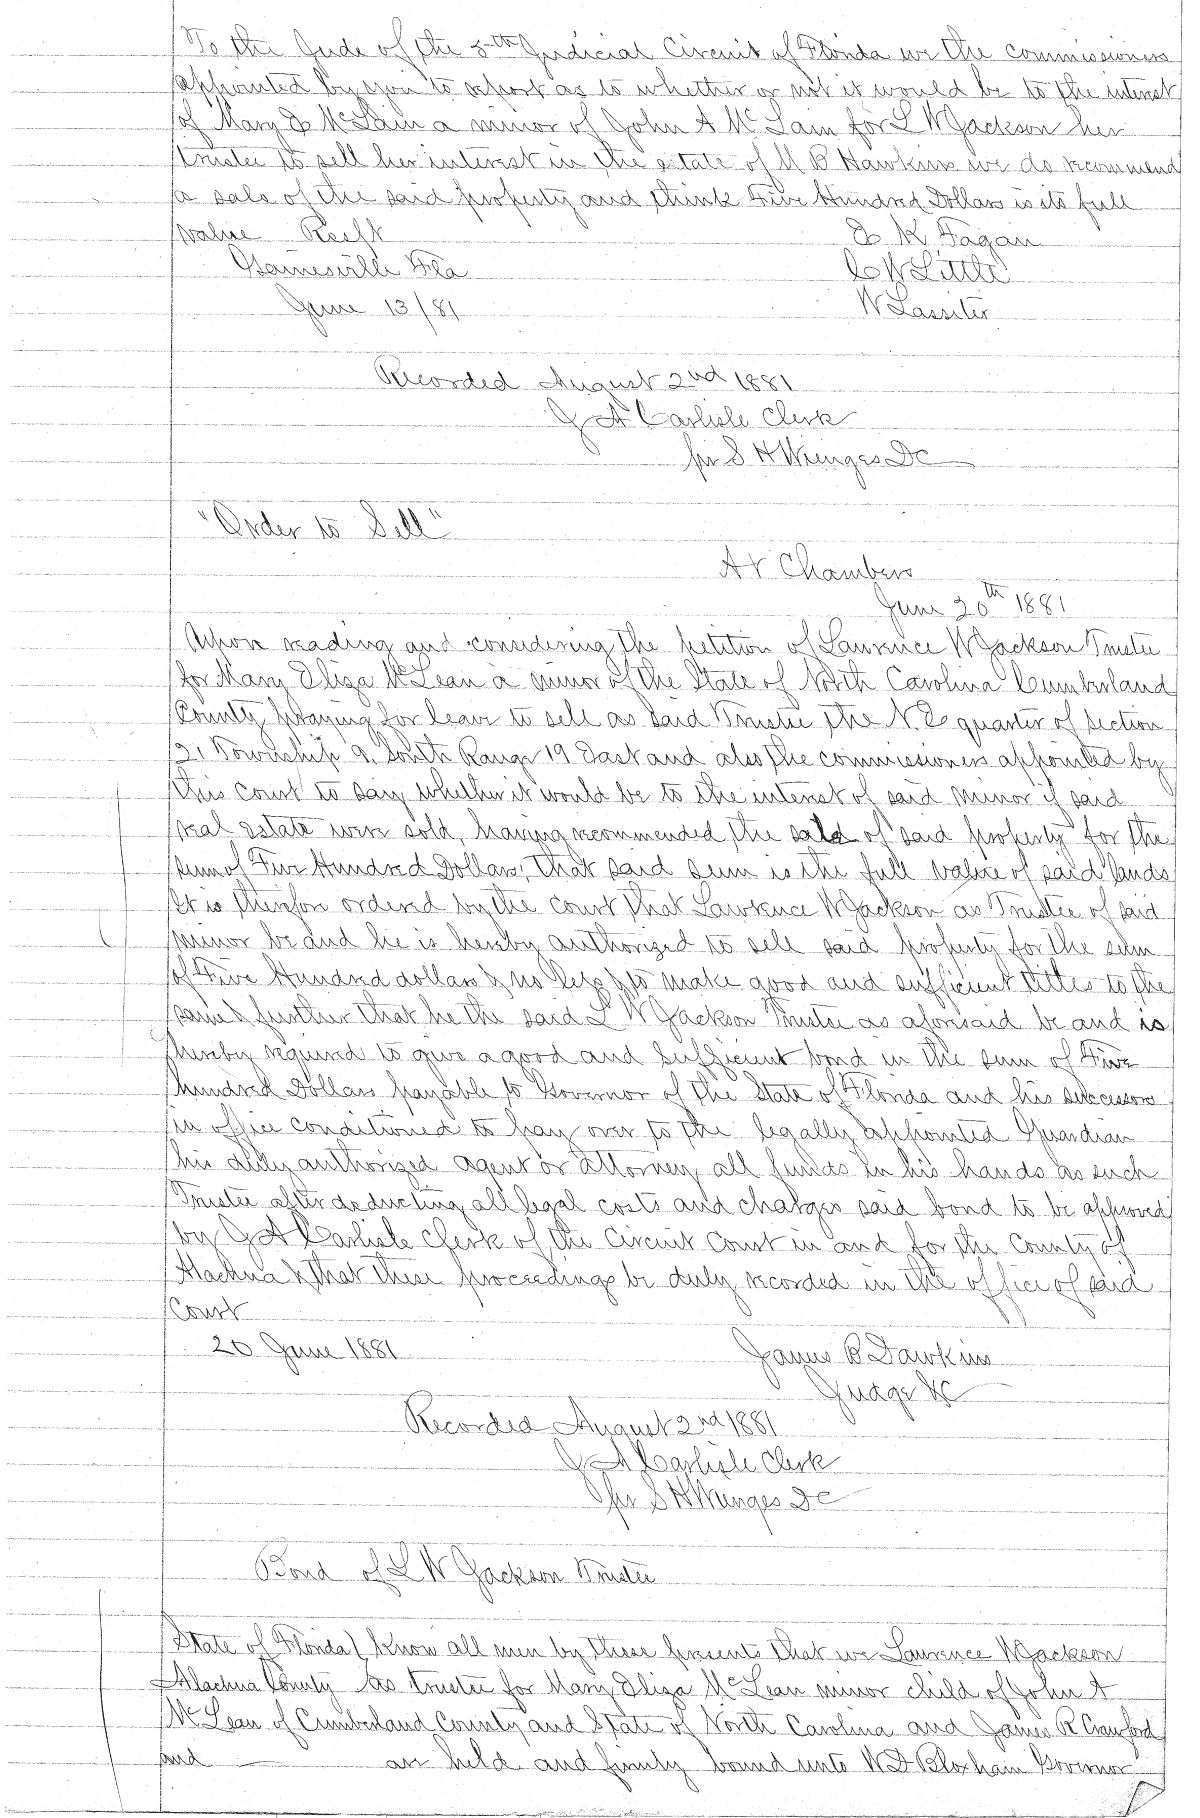 To the Jude of the 5th Judicial Circuit of Florida we the commissioners
appointed by you to report as to whether or not it would be to the interest
of Mary E McLain a minor of John A McLain for L W Jackson her
trustee to sell her interest in the estate of M B Hawkins we do recommend
a sale of the said property and think Five Hundred Dollars is its full
value Resft E K Fagan
Gainesville Fla C W Little
June 13/81 W Lassiter
Recorded August 2nd 1881
J A Carlisle Clerk
per S H Wienges DC
"Order to Sell"
At Chambers
June 20th 1881
Upon reading and considering the petition of Lawrence W Jackson Trustee
for Mary Eliza McLean a minor of the State of North Carolina Cumberland
County praying for leave to sell as said Trustee the N. E quarter of section
21 Township 9. South Range 19 East and also the commissioners appointed by
this court to say whether it would be to the interest of said minor if said
real estate were sold, having recommended the sale of said property for the
sum of Five Hundred Dollars, that said sum is the full value of said lands
It is therefore ordered by the court that Lawrence W Jackson as Trustee of said
minor be and he is hereby authorized to sell said property for the sum
of Five Hundred dollars & no less & to make good and sufficient titles to the
same & further that he the said L W Jackson Trustee as aforesaid be and is
hereby required to give a good and sufficient bond in the sum of Five
hundred Dollars payable to Governor of the State of Florida and his successors
in office conditioned to pay over to the legally appointed Guardian
his duly authorized agent or attorney all funds in his hands as such
Trustee after deducting all legal costs and charges said bond to be approved
by J A Carlisle Clerk of the Circuit Court in and for the County of
Alachua & that these proceedings be duly recorded in the office of said
Court
20 June 1881 James B Dawkins
Judge &C
Recorded August 2nd 1881
J A Carlisle Clerk
per S H Wienges DC
Bond of L W Jackson Trustee
State of Florida } Know all men by these presents that we Laurence W Jackson
Alachua County as trustee for Mary Eliza McLean minor child of John A
McLean of Cumberland County and State of North Carolina and James R Crawford
and — are held and firmly bound unto W D Bloxham Governor